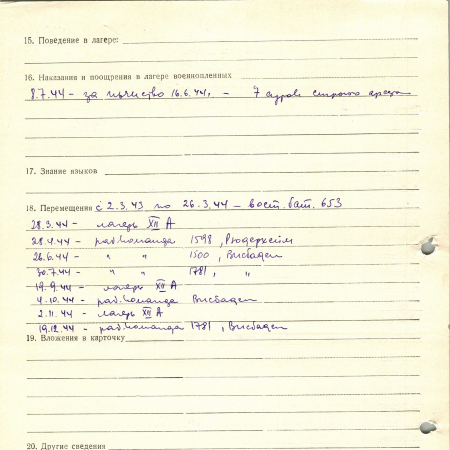 15. Поведение в лагере:
16. Наказания и поощрения в лагере военнопленных
8.7.44 - за пьянство 16.6.44г. - 7 суток строгого ареста
17. Знание языков
18. Перемещения с 2.3.43 по 26.3.44 - вост. бат. 653
28.3.44 - лагерь XII A
28.4.44 - раб.команда 1598, Рюдерхейм
26.6.44 - " " 1500, Висбаден
30.7.44 - " " 1781, "
19.9.44 - лагерь XII A
4.10.44 - раб.команда Висбаден
2.11.44 - лагерь XII A
19.12.44 - раб.команда 1781, Висбаден
19. Вложения в карточку
20. Другие сведения